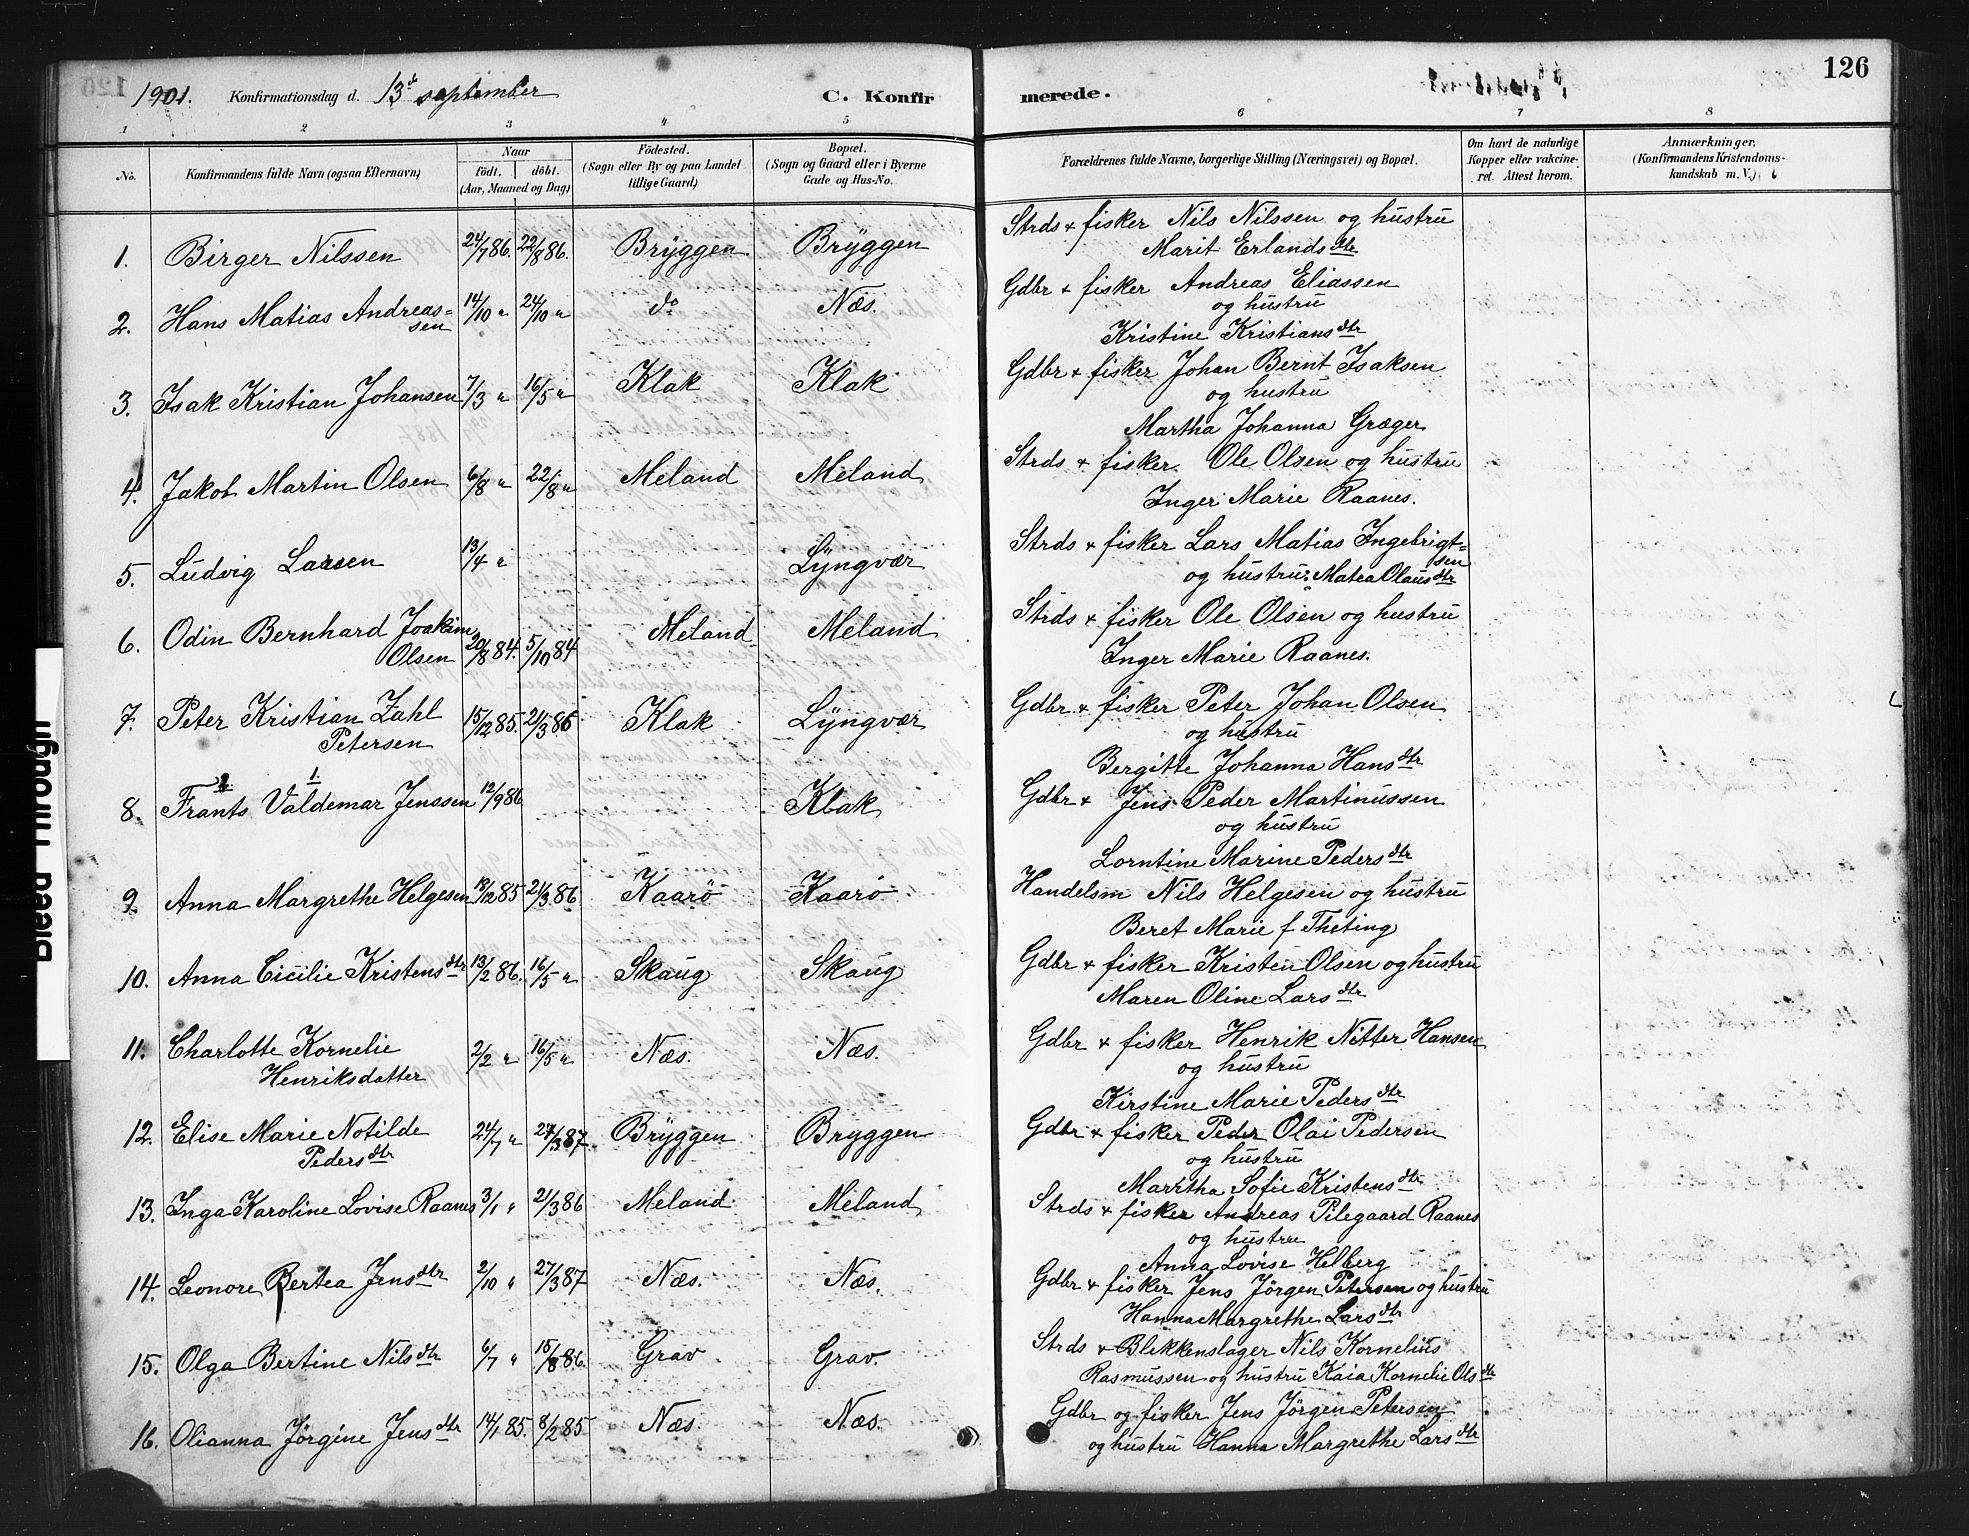 126
1901. Konfirmationsdag d. 13de september C. Konfirmerede.
1 2 3 4 5 6 7 8
No. Konfirmandens fulde Navn (ogsaa Efternavn) Naar födt. döbt. (Aar, Maaned og Dag) Födested. (Sogn eller By og paa Landet tillige Gaard) Bopæl. (Sogn og Gaard eller i Byerne Gade og Hus-No. Forældrenes fulde Navne, borgerlige Stilling (Næringsvei) og Bopæl. Om havt de naturlige Kopper eller vakcineret. Attest herom. Anmærkninger. (Konfirmandens Kristendomskundskab m. V.)
1. Birger Nilssen 24/7 86. 22/8 86. Bryggen Bryggen Strds & fisker Nils Nilssen og hustru
Marit Erlandsdtr
2. Hans Matias Andreas= 14/10 " 24/10 " do Næs. Gdbr & fisker Andreas Eliassen
sen og hustru
Kristine Kristiansdtr
3. Isak Kristian Johansen 7/3 " 16/5 " Klak Klak Gdbr & fisker Johan Bernt Isaksen
og hustru
Martha Johanna Græger
4. Jakob Martin Olsen 6/8 " 22/8 " Meland Meland Strds & fisker Ole Olsen og hustru
Inger Marie Raanes.
5. Ludvig Larsen 13/4 " Lyngvær Strds & fisker Lars Matias Ingebrigt=
sen
og hustru Matea Olausdtr
6. Odin Bernhard Joakim 20/8 84. 5/10 84 Meland Meland Strds & fisker Ole Olsen og hustru
Olsen Inger Marie Raanes.
7. Peter Kristian Zahl 15/12 85. 21/3 86 Klak Lyngvær Gdbr & fisker Peter Johan Olsen
Petersen og hustru
Bergitte Johanna Hansdtr
8. Frants Valdemar Jenssen 12/9 86 Klak Gdbr & Jens Peder Martinussen
og hustru
Lorntine Marine Pedersdtr
9. Anna Margrethe Helgesen 18/12 85 21/3 86 Kaarö Kaarö Handelsm Nils Helgesen og hustru
Beret Marie f Theting
10. Anna Cicilie Kristensdtr 13/2 86. 16/5 " Skaug Skaug Gdbr & fisker Kristen Olsen og hustru
Maren Oline Larsdtr
11. Charlotte Kornelie 2/2 " 16/5 " Næs. Næs. Gdbr & fisker Henrik Nitter Hansen
Henriksdatter og hustru
Kirstine Marie Pedersdtr
12. Elise Marie Notilde 24/7 " 27/3 87. Bryggen Bryggen Gdbr & fisker Peder Olai Pedersen
Pedersdtr og hustru
Marrtha Sofie Kristensdtr
13. Inga Karoline Lovise Raanes 3/1 " 21/3 86 Meland Meland Strds & fisker Andreas Pilegaard Raanes
og hustru
Anna Lovise Helberg
14. Leonore Bertea Jensdtr 2/10 " 27/3 87 Næs. Næs. Gdbr & fisker Jens Jörgen Petersen og hustru
Hanna Margrethe Larsdtr
15. Olga Bertine Nilsdtr 6/7 " 15/8 86 Grav Grav. Strds & Blikkenslager Nils Kornelius
Rasmussen og hustru Kaia Kornelie Olsdtr
16. Olianna Jörgine Jensdtr 14/1 85. 8/2 85 Næs. Næs. Gdbr og fisker Jens Jörgen Petersen
og hustru Hanna Margrethe Larsdtr